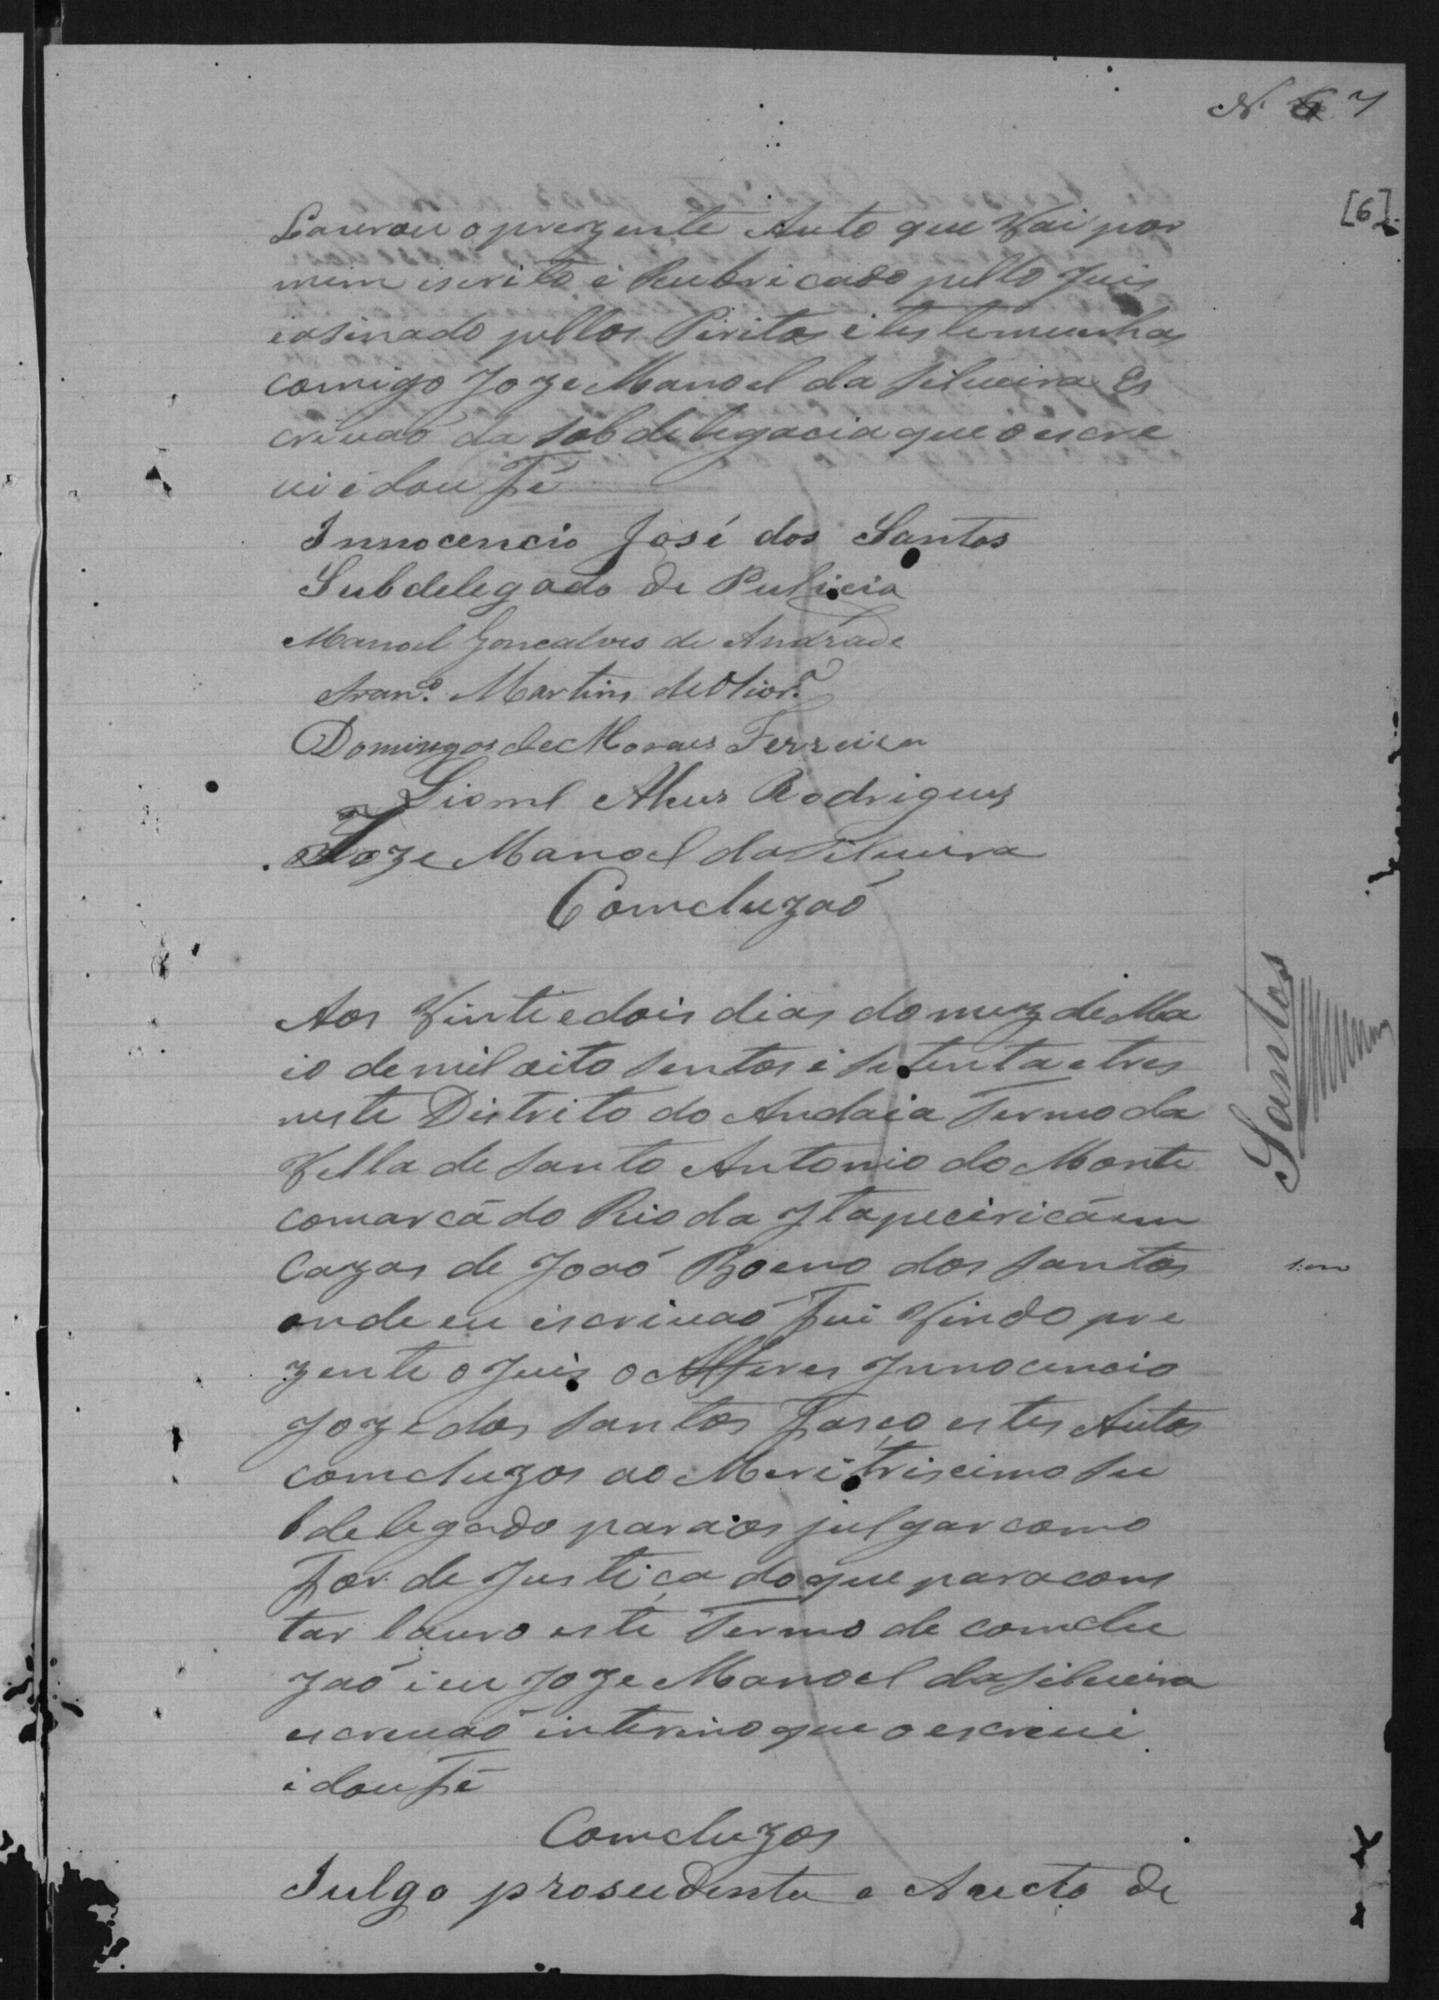 N. 6 7
[6]
Lavrou o prezente Auto que Vai por
mim iscrito e Rubricado pello Juis
easinado pellos Piritos e testemunhas
comigo Joze Manoel da Silveira Es
crivaõ da Sobdelegacia que o escre
vi e dou Fé
Innocencio José dos Santos
Subdelegado de Pulicia
Manoel Goncalves de Andrade
Fran.º Martins de Olivr.ª
Domingos de Moraes Ferreira
Lionel Alves Rodrigues
Joze Manoel da Silveira
Comcluzaõ
Aos Vinti e dois dias do mez de Ma
io de mil oito sentos e setenta e tres
neste Distrito do Andaia Termo da
Villa de Santo Antonio do Monte
comarca do Rio da Itapecirica em
Cazas de Joaõ Boeno dos Santos
onde eu iscrivaõ Fui Vindo pre
zente o Juis o Alferes Innocencio
Joze dos Santos Faço estes Autos
comcluzos ao Meritriscimo Su
bdelegado para os julgar como
For de Justiça do que para cons
tar lavro este Termo de comclu
zaõ i eu Joze Manoel da Silveira
escrivaõ interino que o escrevi
i dou Fé
Comcluzos
Julgo prosedente o Aucto de
Santos